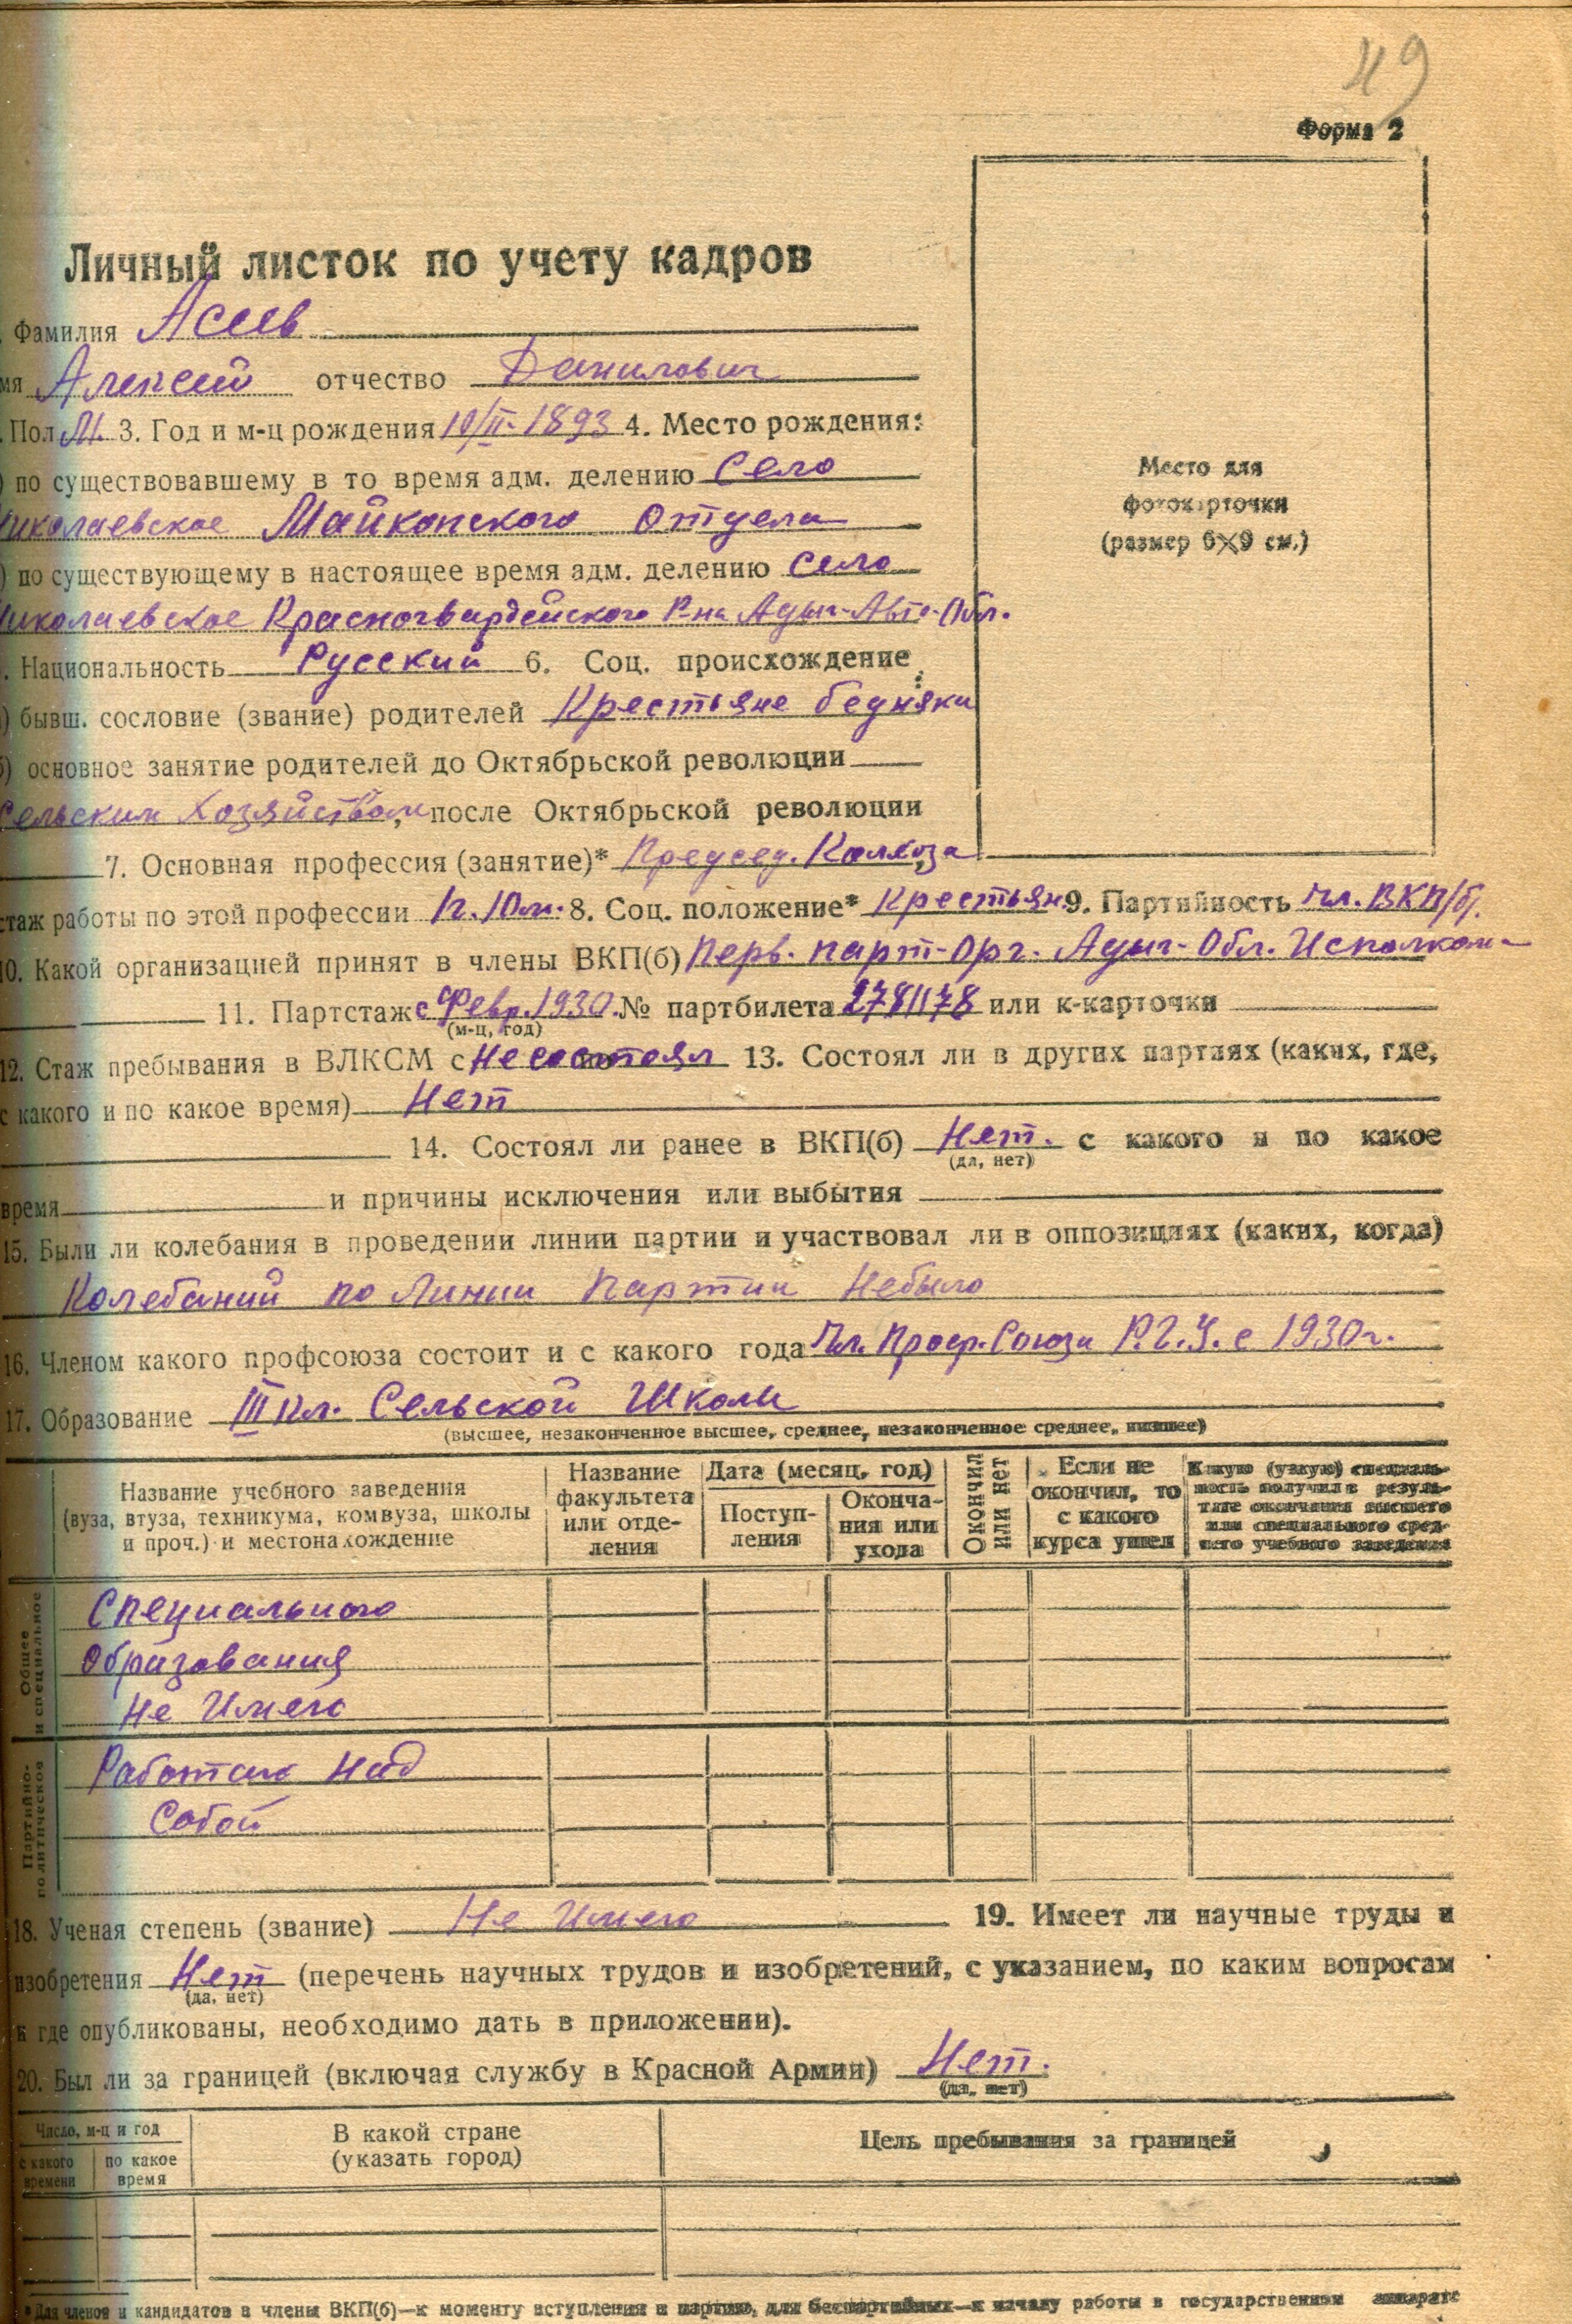 49
Форма 2
Личный листок по учету кадров
Фамилия Асеев
мя Алексей отчество Данилович
Пол М. 3. Год и м-ц рождения 10/II-1893 4. Место рождения:
) по существовавшему в то время адм. делению Село
Николаевское Майкопского Отдела
) по существующему в настоящее время адм. делению Село
Николаевское Красногвардейского Р-на Адыг-Авто-Обл.
. Национальность Русский 6. Соц. происхождение:
) бывш. сословие (звание) родителей Крестьяне бедняки
б) основное занятие родителей до Октябрьской революции
Сельским Хозяйством, после Октябрьской революции
7. Основная профессия (занятие)* Председ. Колхоза
стаж работы по этой профессии 1г. 10м. 8. Соц. положение* Крестьян. 9. Партийность Чл. ВКП/б/.
10. Какой организацией принят в члены ВКП(б) Перв. парт-Орг. Адыг-Обл. Исполкома
11. Партстаж с Февр. 1930. № партбилета 2781178 или к-карточки
(м-ц, год)
12. Стаж пребывания в ВЛКСМ с Не состоял 13. Состоял ли в других партиях (каких, где,
с какого и по какое время) Нет
14. Состоял ли ранее в ВКП(б) Нет. с какого и по какое
(да, нет)
время и причины исключения или выбытия
15. Были ли колебания в проведении линии партии и участвовал ли в оппозициях (каких, когда)
Колебаний по Линии Партии Небыло
16. Членом какого профсоюза состоит и с какого года Чл. Проф. Союза Р.Г.У. с 1930г.
17. Образование III кл. Сельской Школы
(высшее, незаконченное высшее, среднее, незаконченное среднее, низшее)
Название учебного заведения (вуза, втуза, техникума, комвуза, школы и проч.) и местонахождение
Название факультета или отделения
Дата (месяц, год)
Поступления
Окончания или ухода
Окончил или нет
Если не окончил, то с какого курса ушел
Какую (узкую) специальность получил в результате окончания высшего или специального среднего учебного заведения
Общее и специальное
Специального
Образования
Не Имею
Партийно-политическое
Работаю Над
Собой
18. Ученая степень (звание) Не Имею 19. Имеет ли научные труды и
изобретения Нет (перечень научных трудов и изобретений, с указанием, по каким вопросам
(да, нет)
и где опубликованы, необходимо дать в приложении).
20. Был ли за границей (включая службу в Красной Армии) Нет.
(да, нет)
Число, м-ц и год
с какого времени
по какое время
В какой стране (указать город)
Цель пребывания за границей
* Для членов и кандидатов в члены ВКП(б)—к моменту вступления в партию, для беспартийных—к началу работы в государственном аппарате
Место для
фотокарточки
(размер 6×9 см.)